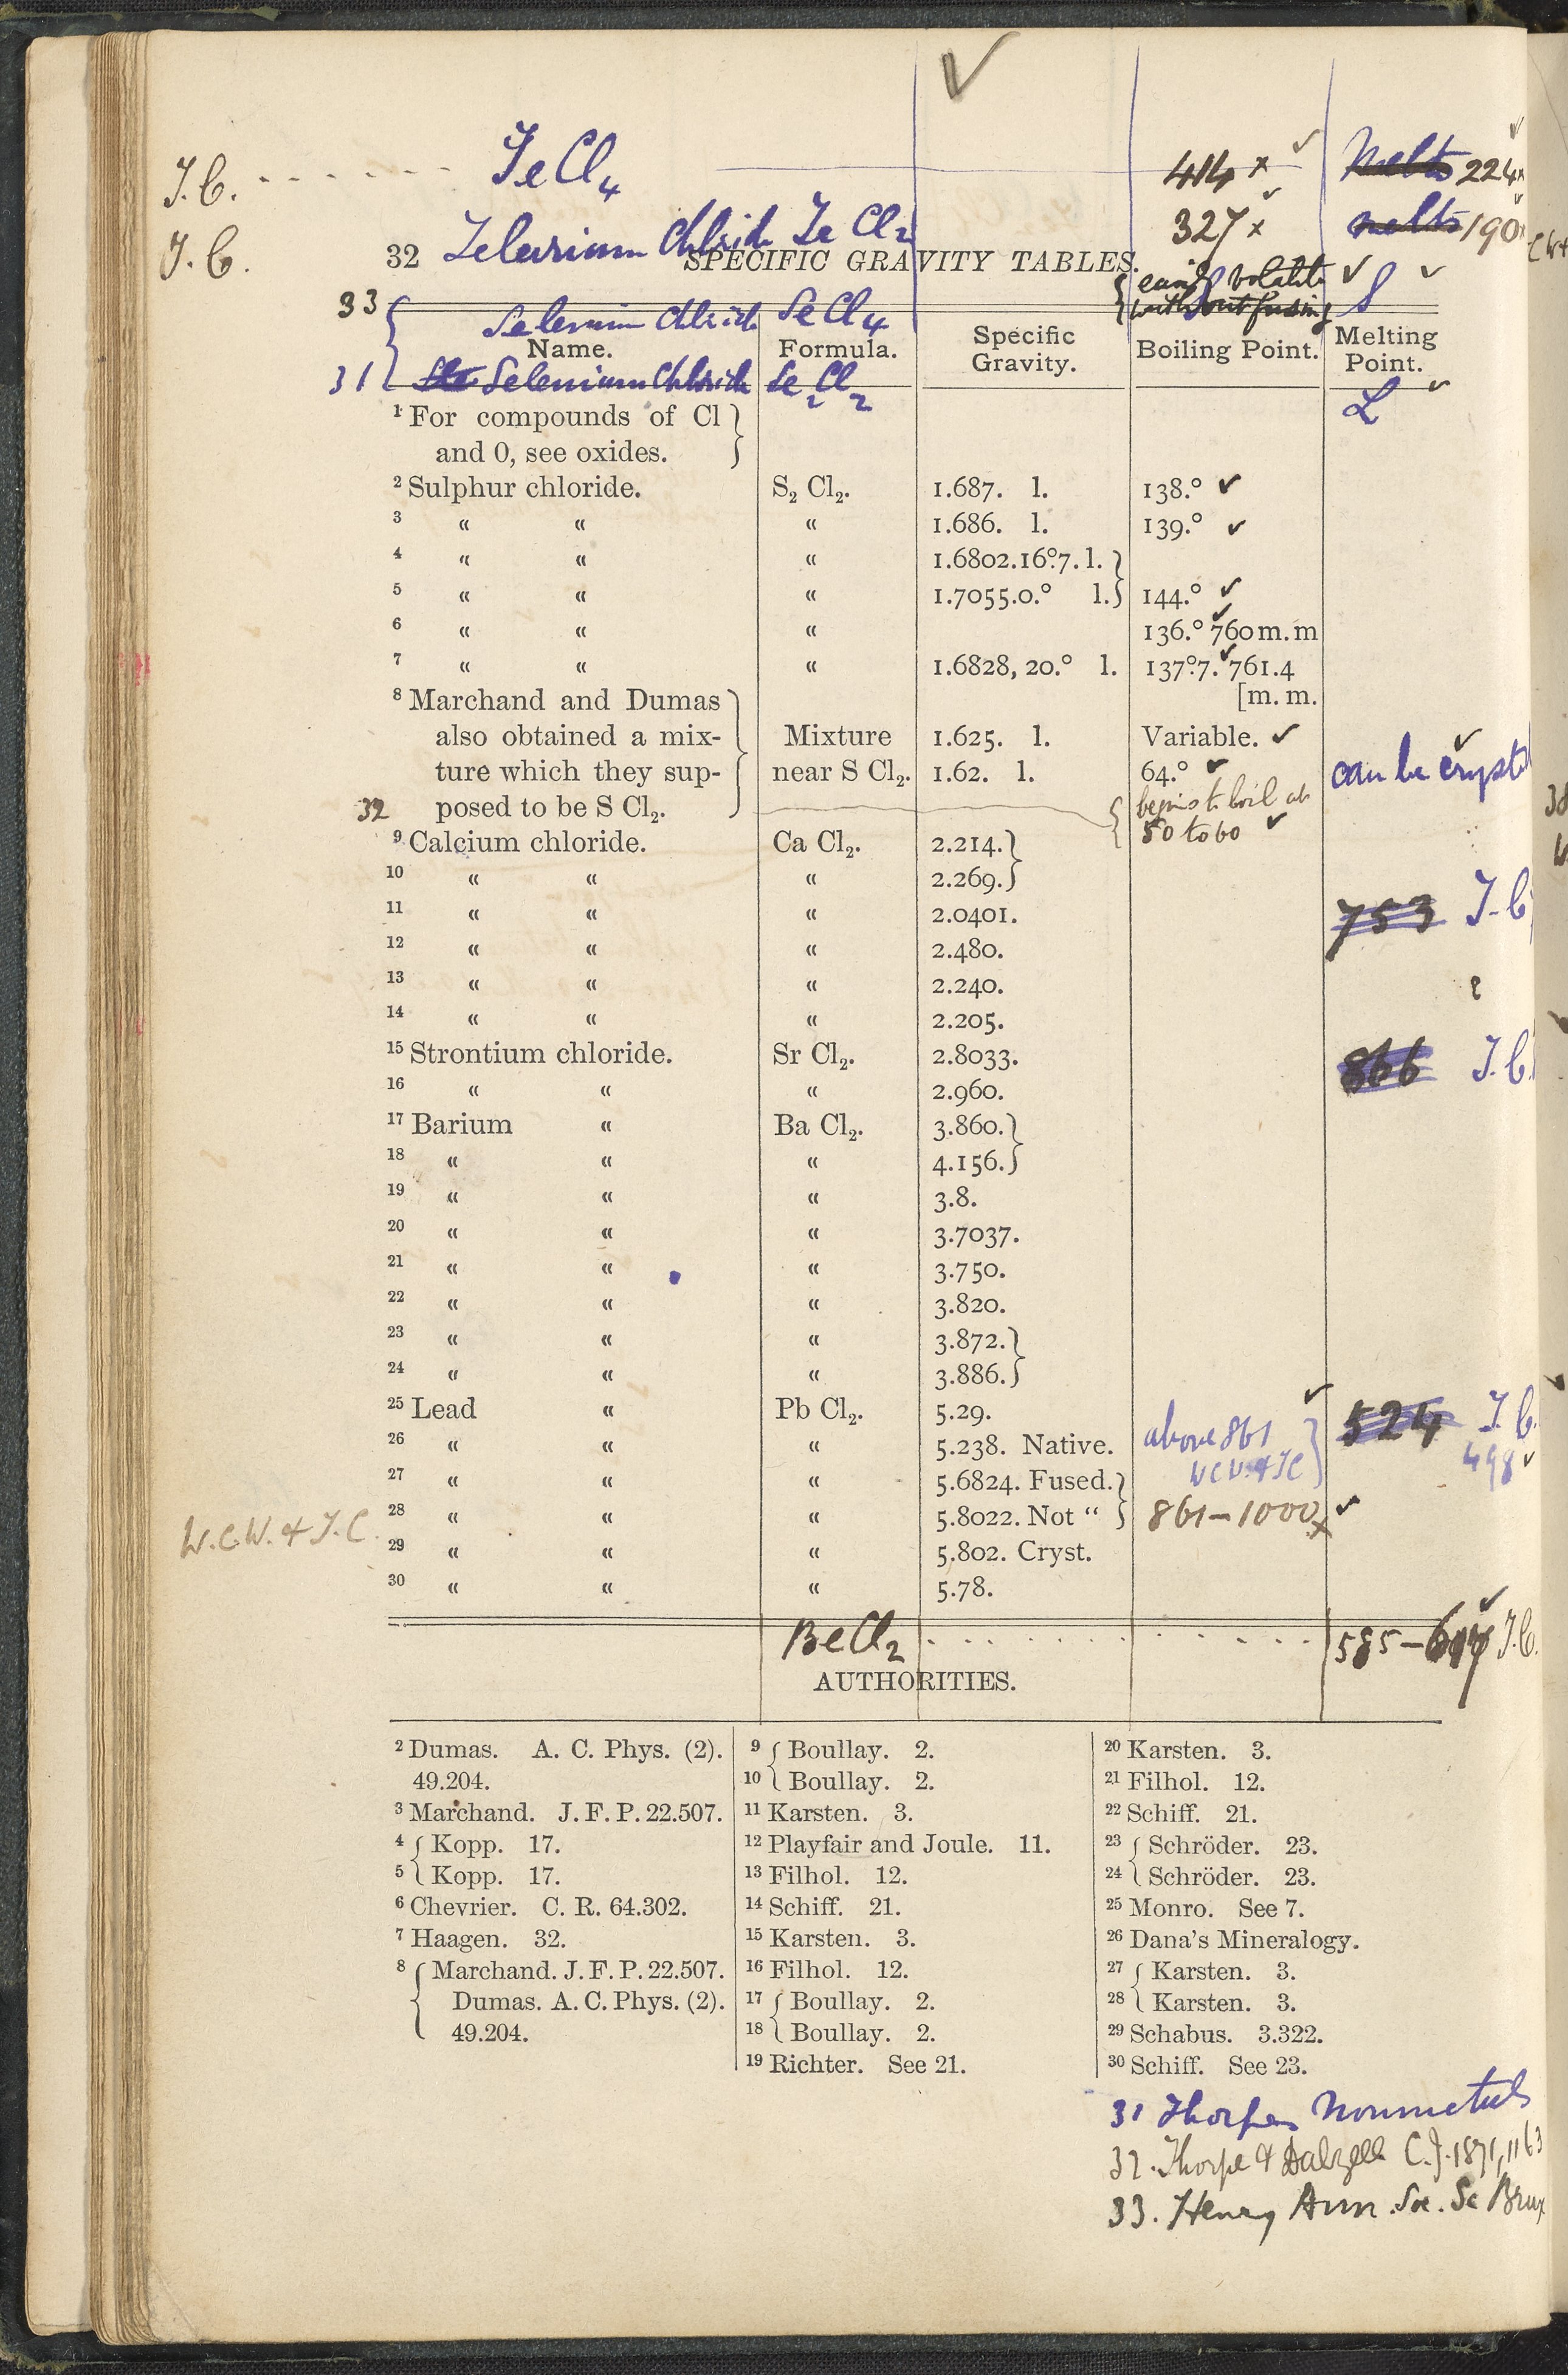 T.C. - - - - - - - TeCl₄ 414 × ✓ Melts 224 × ✓
T.C. Tellurium Chloride Te Cl₂ 327 × ✓ melts 190 × ✓
32 SPECIFIC GRAVITY TABLES.
33 { Selenium Chloride Se Cl₄ { easily volatile without fusing ✓ S ✓
Name. Formula. Specific Gravity. Boiling Point. Melting Point.
31 Selenium Chloride Se₂Cl₂ L ✓
¹ For compounds of Cl }
and O, see oxides.
² Sulphur chloride. S₂ Cl₂. 1.687. l. 138.° ✓
³ “ “ “ 1.686. l. 139.° ✓
⁴ “ “ “ 1.6802.16°.7. l. }
⁵ “ “ “ 1.7055.0.° l. } 144.° ✓
⁶ “ “ “ 136.° ✓ 760 m. m
⁷ “ “ “ 1.6828, 20.° l. 137°.7. ✓ 761.4
[m. m.
⁸ Marchand and Dumas }
also obtained a mix- Mixture 1.625. l. Variable. ✓
ture which they sup- near S Cl₂. 1.62. l. 64.° ✓ can be crystd ✓
32 posed to be S Cl₂. { begins to boil at
50 to 60 ✓
⁹ Calcium chloride. Ca Cl₂. 2.214. }
¹⁰ “ “ “ 2.269. }
¹¹ “ “ “ 2.0401. 753 T.C.
¹² “ “ “ 2.480.
¹³ “ “ “ 2.240. ?
¹⁴ “ “ “ 2.205.
¹⁵ Strontium chloride. Sr Cl₂. 2.8033. 866 T.C.
¹⁶ “ “ “ 2.960.
¹⁷ Barium “ Ba Cl₂. 3.860. }
¹⁸ “ “ “ 4.156. }
¹⁹ “ “ “ 3.8.
²⁰ “ “ “ 3.7037.
²¹ “ “ “ 3.750.
²² “ “ “ 3.820.
²³ “ “ “ 3.872. }
²⁴ “ “ “ 3.886. }
²⁵ Lead “ Pb Cl₂. 5.29. ✓ 524 T.C.
²⁶ “ “ “ 5.238. Native. above 861 498 ✓
²⁷ “ “ “ 5.6824. Fused. } W C W. & T C }
W.C.W. & T.C. ²⁸ “ “ “ 5.8022. Not “ } 861–1000 × ✓
²⁹ “ “ “ 5.802. Cryst.
³⁰ “ “ “ 5.78.
BeCl₂ . . . . . . . . . . . 585–617 ✓ T.C.
AUTHORITIES.
² Dumas. A. C. Phys. (2).
49.204.
³ Marchand. J. F. P. 22.507.
⁴ { Kopp. 17.
⁵ { Kopp. 17.
⁶ Chevrier. C. R. 64.302.
⁷ Haagen. 32.
⁸ { Marchand. J. F. P. 22.507.
Dumas. A. C. Phys. (2).
49.204.
⁹ { Boullay. 2.
¹⁰ { Boullay. 2.
¹¹ Karsten. 3.
¹² Playfair and Joule. 11.
¹³ Filhol. 12.
¹⁴ Schiff. 21.
¹⁵ Karsten. 3.
¹⁶ Filhol. 12.
¹⁷ { Boullay. 2.
¹⁸ { Boullay. 2.
¹⁹ Richter. See 21.
²⁰ Karsten. 3.
²¹ Filhol. 12.
²² Schiff. 21.
²³ { Schröder. 23.
²⁴ { Schröder. 23.
²⁵ Monro. See 7.
²⁶ Dana's Mineralogy.
²⁷ { Karsten. 3.
²⁸ { Karsten. 3.
²⁹ Schabus. 3.322.
³⁰ Schiff. See 23.
31 Thorpes Nonmetals
32. Thorpe & Dalzell C.J. 1871, 1163
33. Henry Ann. Soc. Sc Brux